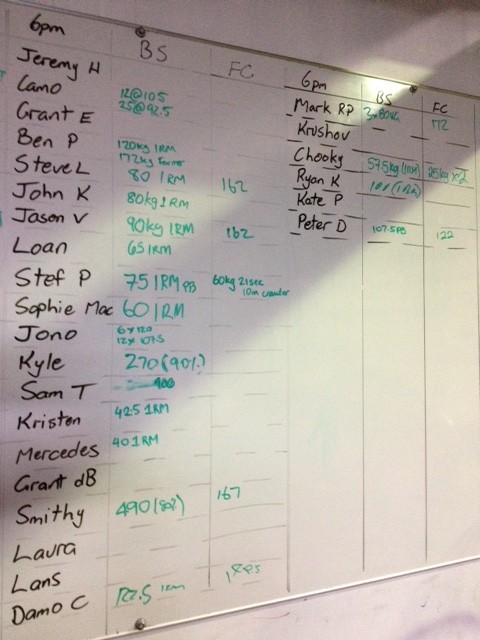 6pm
BS
FC
Jeremy H
Lamo
12@105
25@92.5
Grant E
Ben P
120kg 1RM
172kg
Steve L
80 1RM
162
John K
80kg 1RM
Jason V
90kg 1RM
162
Loan
65 1RM
Stef P
75 1RM PB
60kg 21sec
10m crawler
Sophie Mac
60 1RM
Jono
6 x 120
12 x 107.5
Kyle
270 (90%)
Sam T
400
Kristen
42.5 1RM
Mercedes
40 1RM
Grant dB
Smithy
490 (80%)
167
Laura
Lans
Damo C
6pm
BS
FC
Mark RP
3x80kg
172
Krushov
Chooky
57.5kg (1RM)
25kg x 2
Ryan K
Kate P
Peter D
107.5 PB
122